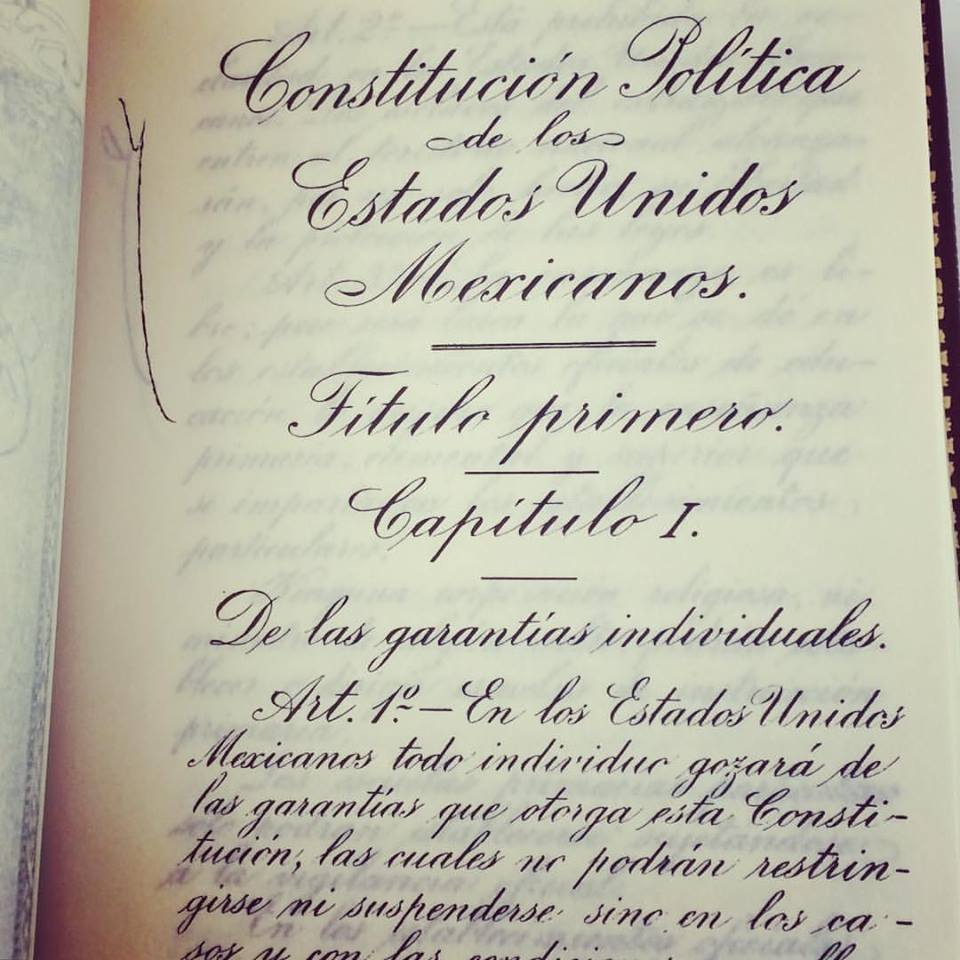 Constitución Política
de los
Estados Unidos
Mexicanos.
Título primero.
Capítulo I.
De las garantías individuales.
Art. 1º.—En los Estados Unidos
Mexicanos todo individuo gozará de
las garantías que otorga esta Consti-
tución, las cuales no podrán restrin-
girse ni suspenderse sino en los ca-
sos y con las